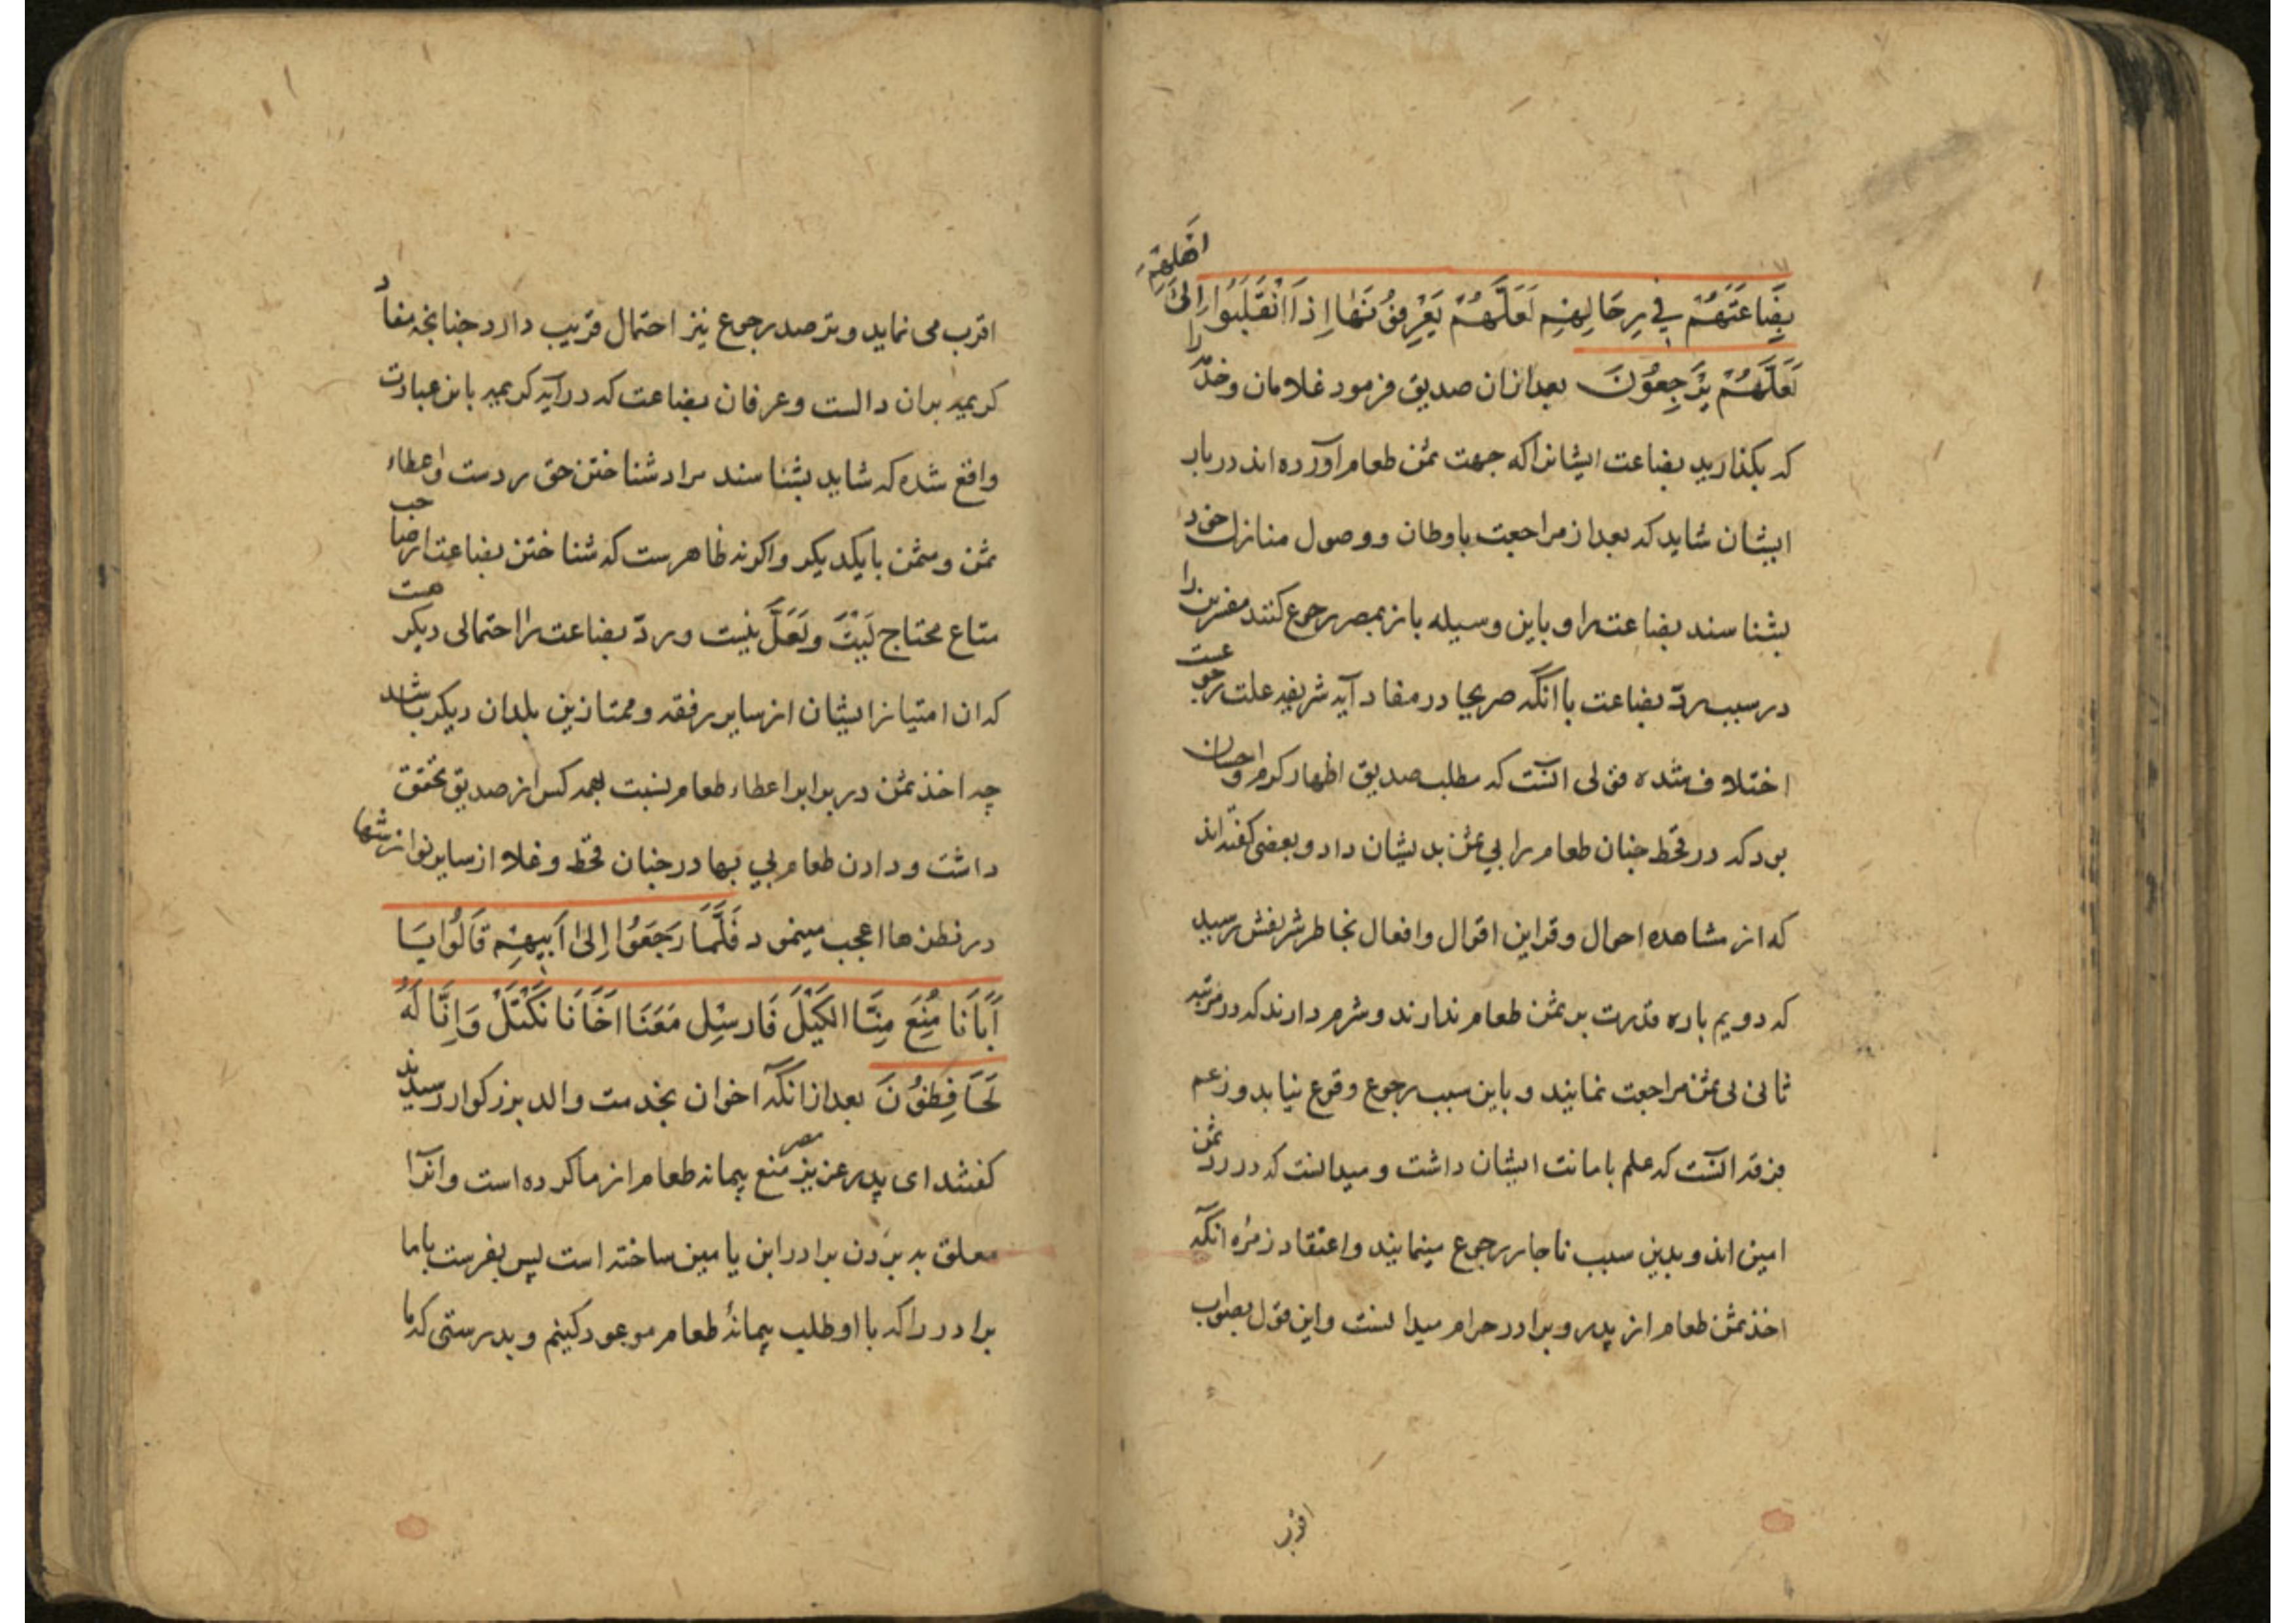 بِضَاعَتَهُمْ فِي رِحَالِهِمْ لَعَلَّهُمْ يَعْرِفُونَهَا اِذَا انْقَلَبُوا اِلىٰ اَهْلِهِمْ
لَعَلَّهُمْ يَرْجِعُونَ بعد ازان صدیق فرمود غلامان وخدّام را
که بکذارید بضاعت ایشانرا که جهت ثمن طعام آورده اند در بار
ایشان شاید که بعد از مراجعت باوطان و وصول منازل خود
بشناسند بضاعت را و باین وسیله باز بمصر رجوع کنند مفسرین را
در سبب ردّ بضاعت با آنکه صریحا در مفاد آیه شریفه علت رجوعست
اختلاف شده قولی آنست که مطلب صدیق اظهار کرم واحسان
بود که در قحط چنان طعام را بی ثمن بدیشان داد و بعضی کفته اند
که از مشاهده احوال وقراین اقوال وافعال بخاطر شریفش رسید
که دویم باره قدرت بر ثمن طعام ندارند وشرم دارند که در مرتبه
ثانی بی ثمن مراجعت نمایند و باین سبب رجوع وقوع نیابد و زعم
فرقه آنست که علم بامانت ایشان داشت و میدانست که در رد ثمن
امین اند و بدین سبب ناچار رجوع مینمایند واعتقاد زمره آنکه
اخذ ثمن طعام از پدر و برادر حرام میدانست واین قول بصواب
اقرب
اقرب می نماید و ترصد رجوع نیز احتمال قریب دارد چنانچه مفاد
کریمه بران دالست وعرفان بضاعت که در آیه کریمه باین عبارت
واقع شده که شاید بشناسند مراد شناختن حق رد است واعطاء
ثمن ومثمن بایکدیکر واکرنه ظاهرست که شناختن بضاعت از صاحب
متاع محتاج لَیْتَ ولَعَلَّ نیست وردّ بضاعت را احتمالی دیکر هست
که ان امتیاز ایشان از سایر رفقه وممتازین بلدان دیکر باشد
چه اخذ ثمن در برابر اعطاء طعام نسبت بهمه کس از صدیق تحقق
داشت ودادن طعام بی بها در چنان قحط وغلا از سایر نوازشها
در نظرها اعجب مینمود فَلَمَّا رَجَعُوا اِلىٰ اَبِيهِمْ قَالُوا يَا
اَبَانَا مُنِعَ مِنَّا الكَيْلُ فَارسِل مَعَنَا اَخَانَا نَكْتَلْ وَاِنَّا لَهُ
لَحَافِظُونَ بعد از آنکه اخوان بخدمت والد بزرکوار رسیدند
کفتند ای پدر عزیز مصر منع پیمانه طعام از ما کرده است وانرا
معلق به بردن برادر ابن یامین ساخته است پس بفرست باما
برادر را که با او طلب پیمانهٔ طعام موعود کنیم و بدرستی که ما